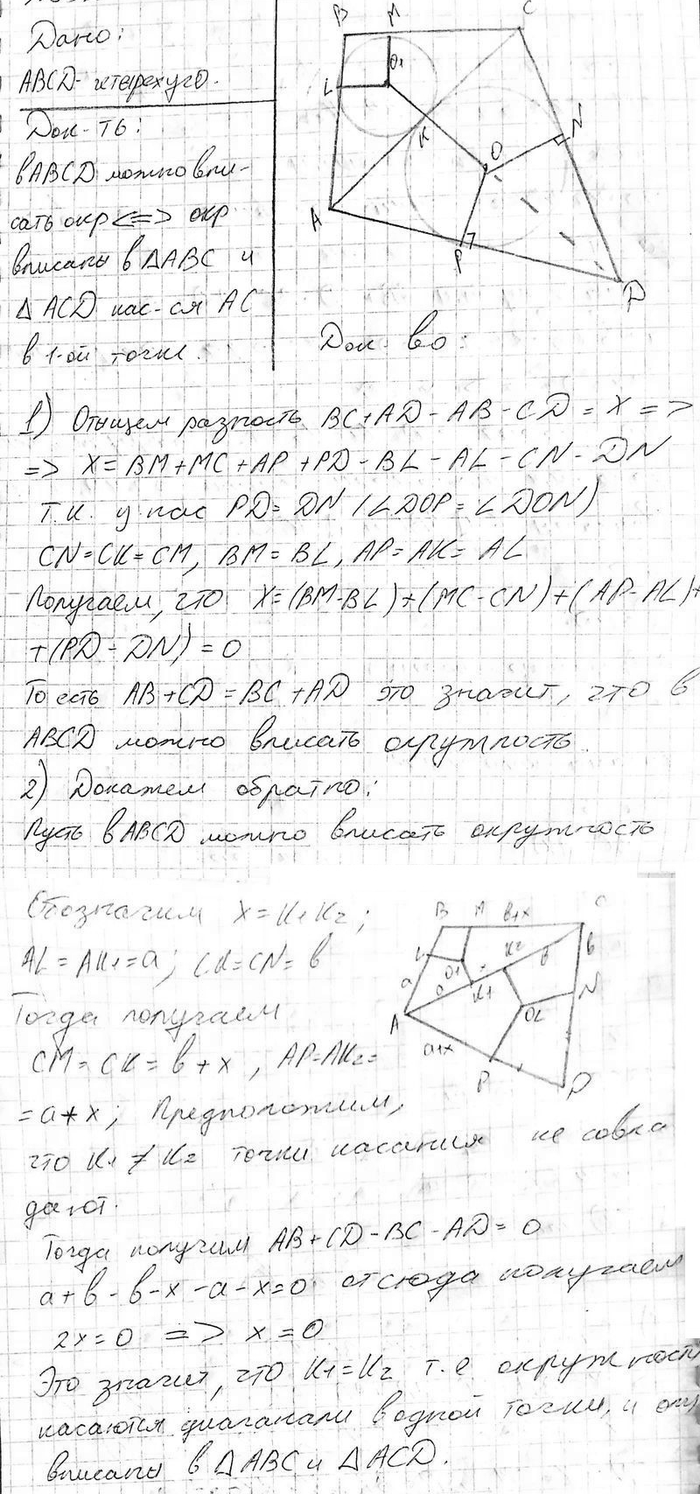 Дано:
ABCD- четырехуго.
Док-ть:
в ABCD можно впи-
сать окр <=> окр
вписаны в ΔABC и
ΔACD кас-ся AC
в 1-ой точке.
B M C
L O1
K O N
A P D
Док-во:
1) Отыщем разность BC+AD-AB-CD=X =>
=> X=BM+MC+AP+PD-BL-AL-CN-DN
т.к. у нас PD=DN (∠DOP=∠DON)
CN=CK=CM, BM=BL, AP=AK=AL
Получаем, что X=(BM-BL)+(MC-CN)+(AP-AL)+
+(PD-DN)=0
То есть AB+CD=BC+AD это значит, что в
ABCD можно вписать окружность.
2) Докажем обратно:
Пусть в ABCD можно вписать окружность
Обозначим X=K1K2;
AL=AK1=a; CK=CN=b
Тогда получаем
CM=CK=b+x, AP=AK2=
=a+x; Предположим,
что K1≠K2 точки касания не совпа
дают.
B M b+x C
L O1 K2 b b
a a K1 N
A O2
a+x P D
Тогда получим AB+CD-BC-AD=0
a+b-b-x-a-x=0 отсюда получаем
2x=0 => x=0
Это значит, что K1=K2 т.е окружности
касаются диагонали в одной точки, и
вписаны в ΔABC и ΔACD.